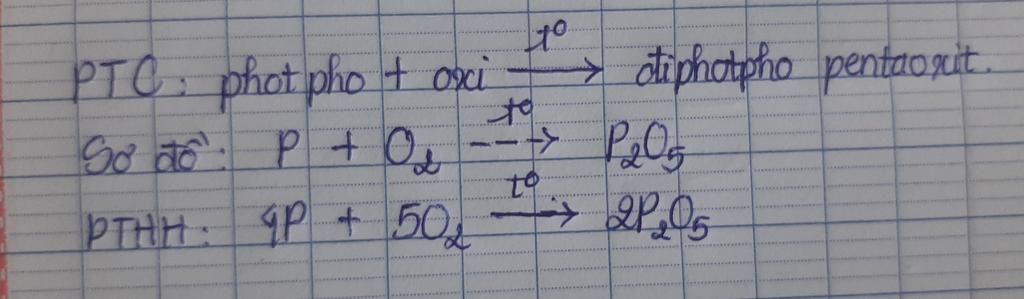 PTC: photpho + oxi —t°→ điphotpho pentaoxit.
Sơ đồ: P + O₂ --t°--> P₂O₅
PTHH: 4P + 5O₂ —t°→ 2P₂O₅